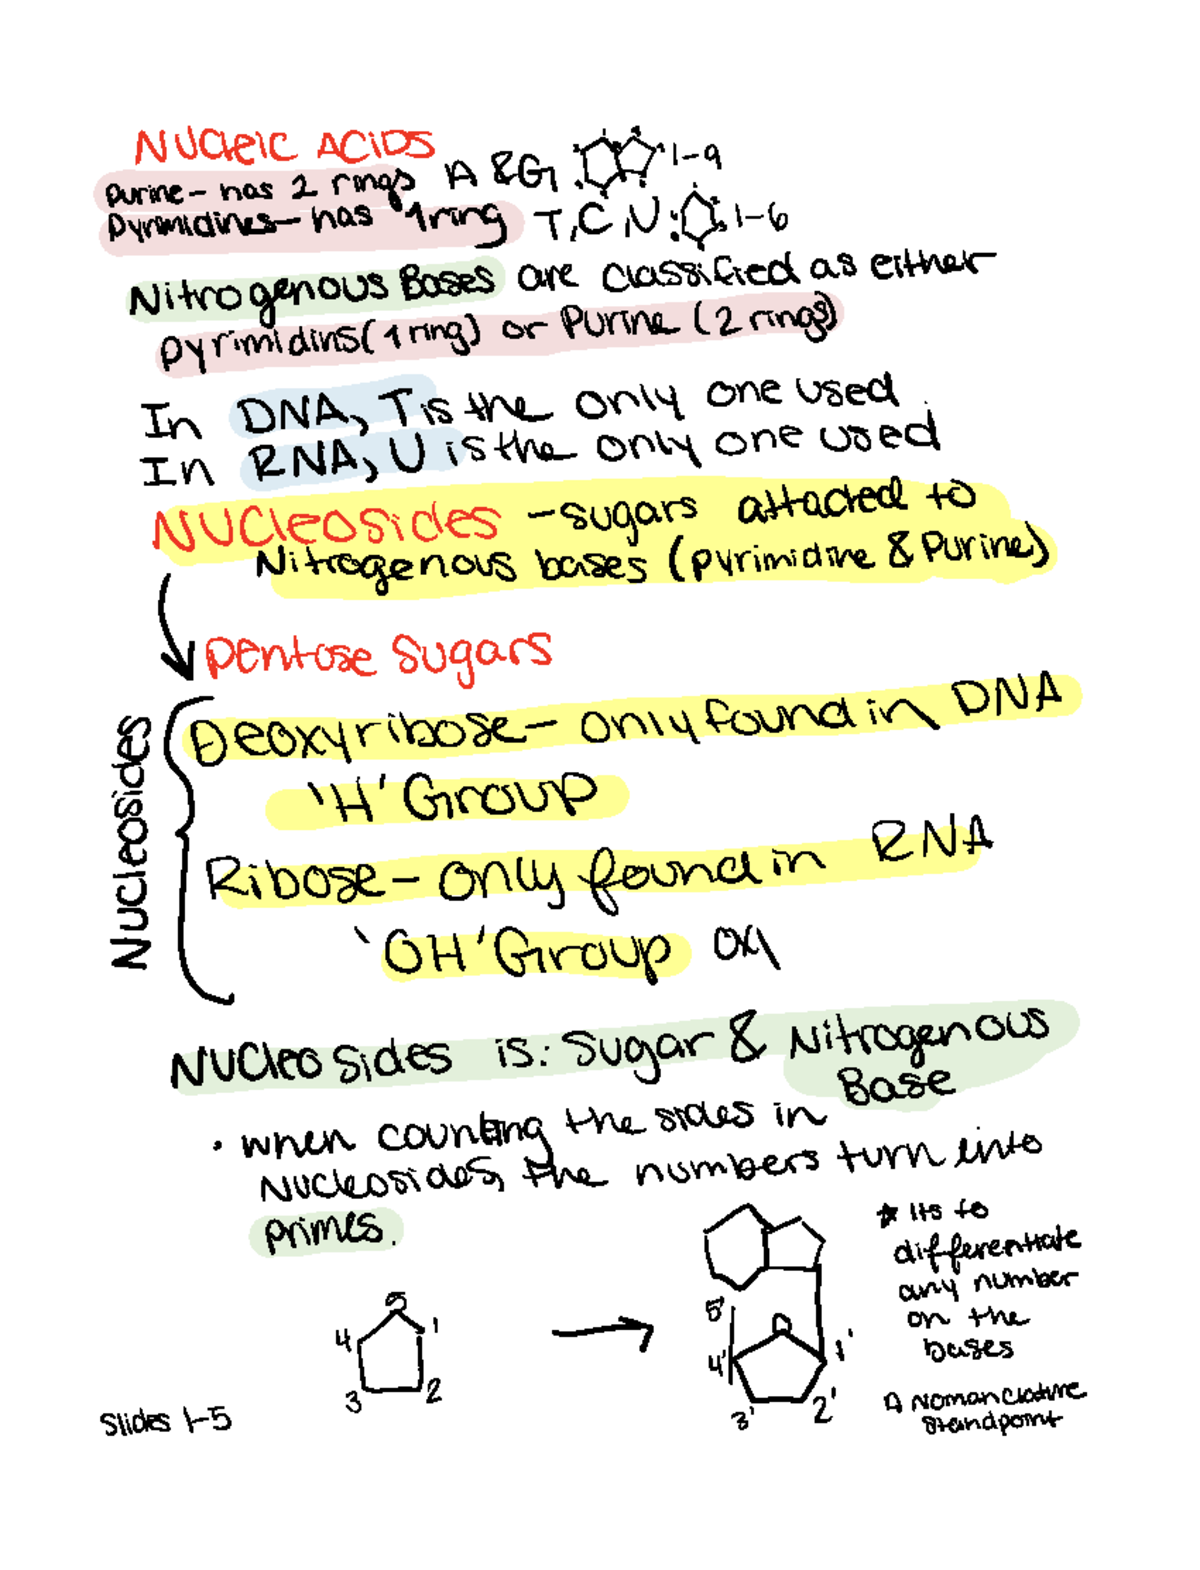 Nucleic Acids
Purine- has 2 rings A & G 1-9
Pyrimidines- has 1 ring T, C, U 1-6
Nitrogenous Bases are classified as either
pyrimidins (1 ring) or Purine (2 rings)
In DNA, T is the only one used
In RNA, U is the only one used
Nucleosides - sugars attached to
Nitrogenous bases (pyrimidine & Purine)
Pentose Sugars
Nucleosides
Deoxyribose- only found in DNA
'H' Group
Ribose- only found in RNA
'OH' Group oxy
Nucleosides is: Sugar & Nitrogenous
Base
• when counting the sides in
Nucleosides, the numbers turn into
primes.
5
4 1
3 2
5'
4' 1'
3' 2'
* its to
differentiate
any number
on the
bases
A Nomanclature
Standpoint
Slides 1-5